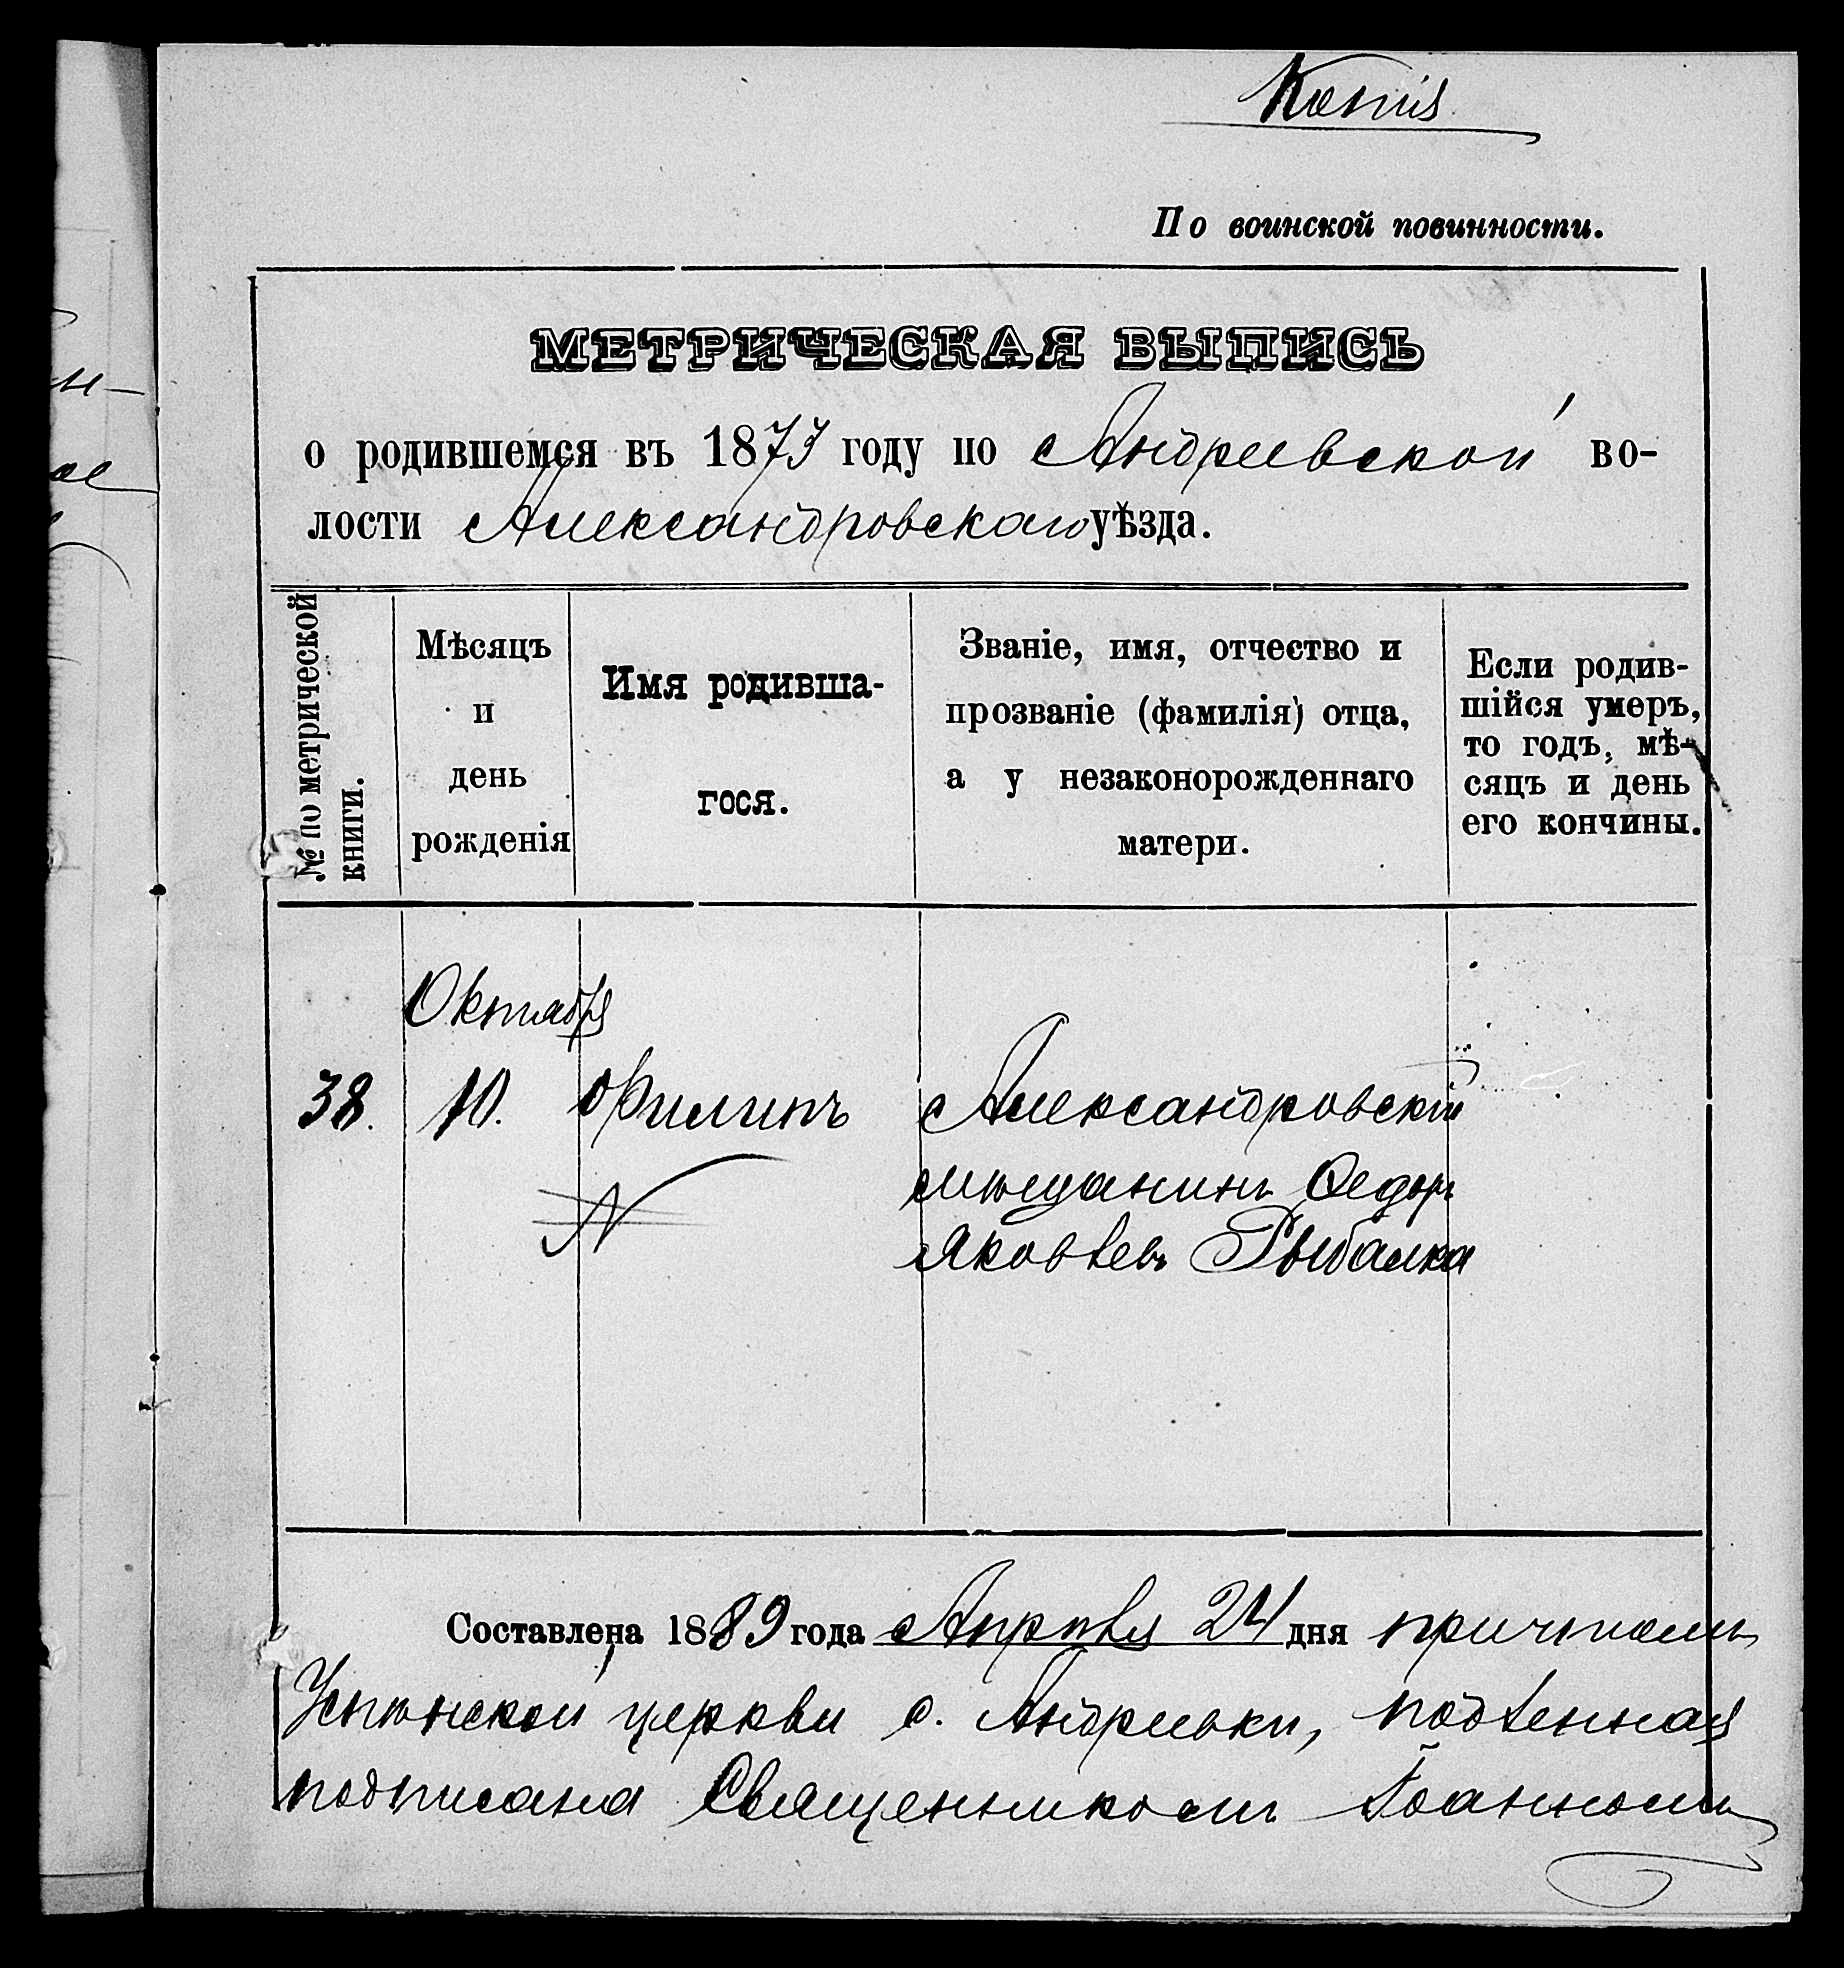 Копія
По воинской повинности.
МЕТРИЧЕСКАЯ ВЫПИСЬ
о родившемся въ 1873 году по Андреевской во-
лости Александровскаго уѣзда.
№ по метрической
книги.
Мѣсяцъ
и
день
рожденія
Имя родивша-
гося.
Званіе, имя, отчество и
прозваніе (фамилія) отца,
а у незаконорожденнаго
матери.
Если родив-
шійся умеръ,
то годъ, мѣ-
сяцъ и день
его кончины.
Октября
38. 10. Филипъ Александровскій
мѣщанинъ Федоръ
Яковлевъ Рыбалка
Составлена 1889 года Апрѣля 24 дня причтомъ
Успѣнской церкви с. Андреевки, подленная
подписана Священникомъ Іоанномъ